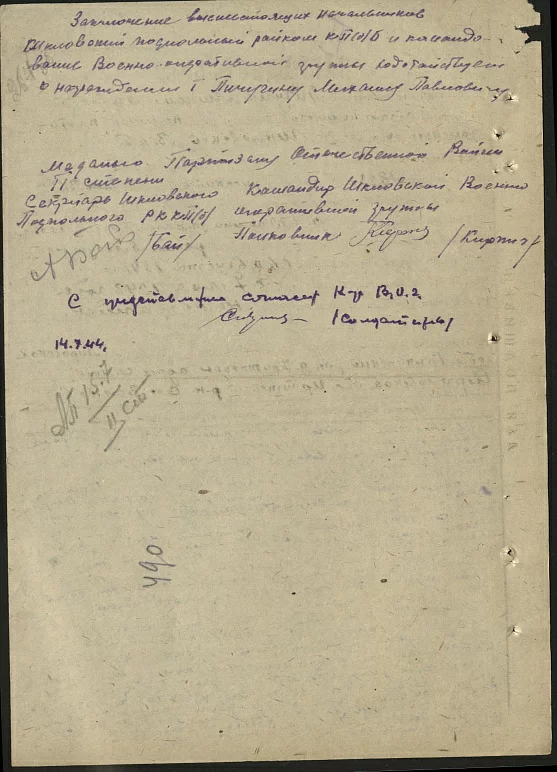 Заключение вышестоящих начальников
Шкловский подпольный райком КП(б)Б и командо-
вание Военно-оперативной группы ходатайствует
о награждении т Пичугину Михаилу Павловичу
Медалью Партизану Отечественной Войны
II степени
Секретарь Шкловского Командир Шкловской Военно
Подпольного РК КП(б) оперативной группы
/Бай/ Полковник /Кирпич/
С представлением согласен К-р В.О.г.
/Солдатенко/
14.7.44.
15.7
II ст.
490